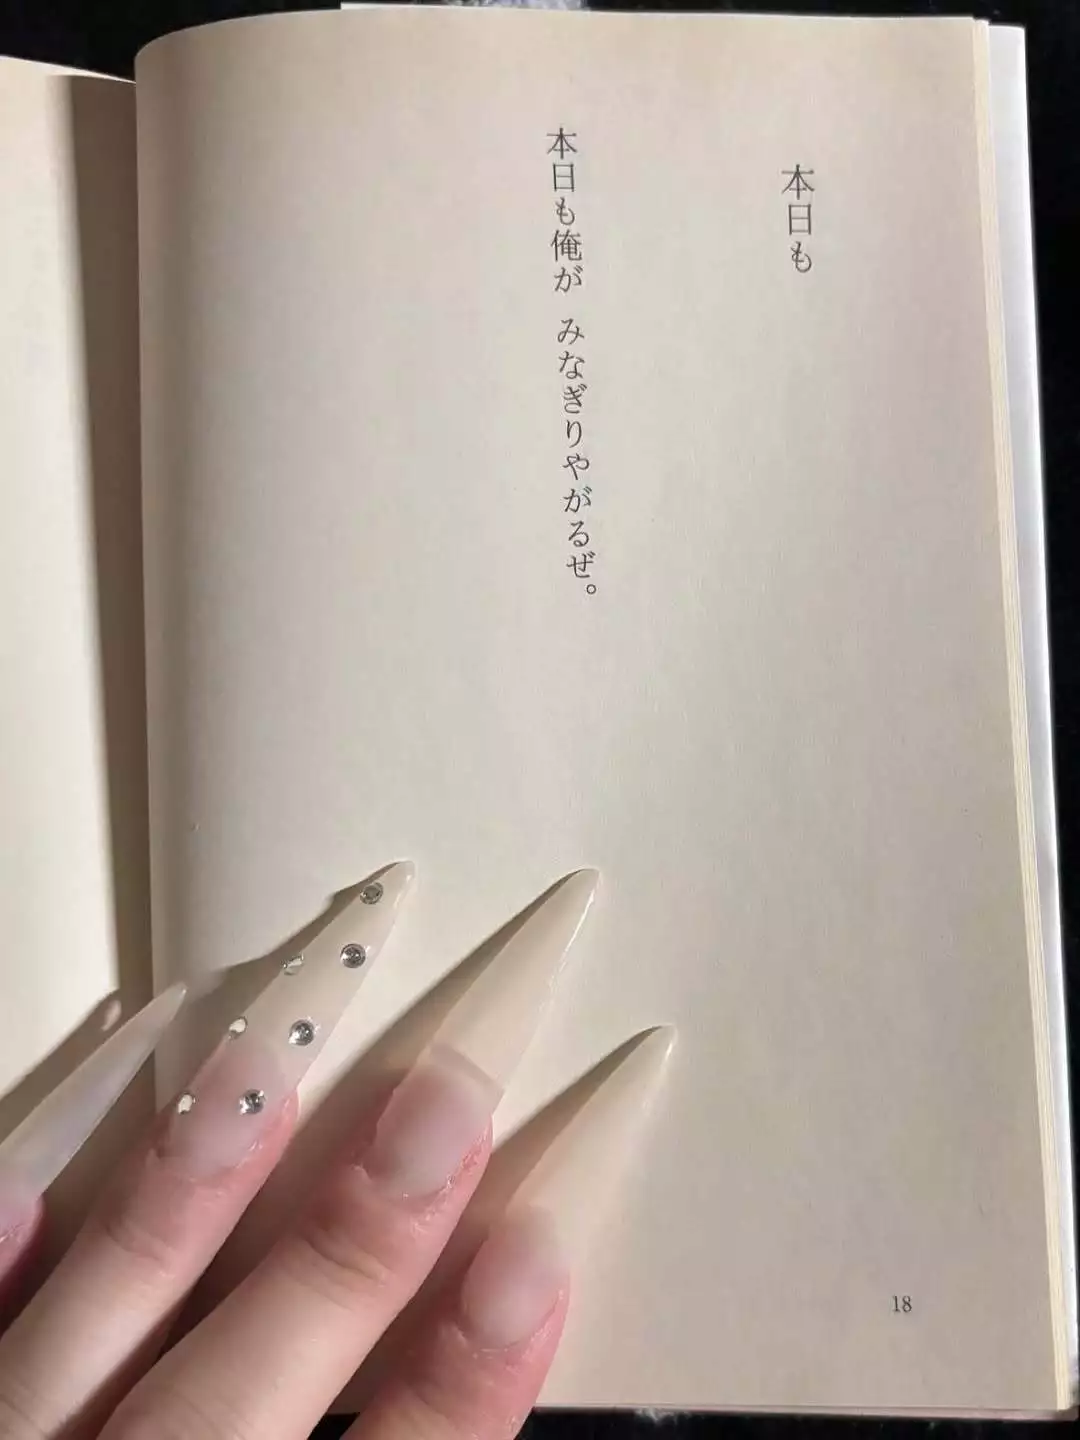 本日も
本日も俺が　みなぎりやがるぜ。
18